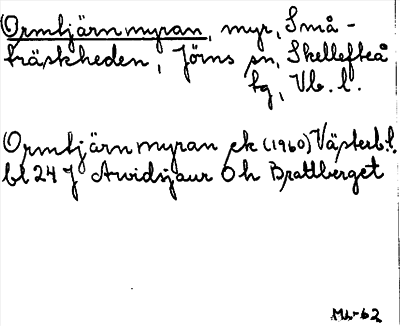 Ormtjärnmyran, myr, Små-
träskheden, Jörns sn, Skellefteå
tg, Vb. l.
Ormtjärnmyran ek (1960) Västerb.l.
bl 24 J Arvidsjaur Öh Brattberget
Mb-62